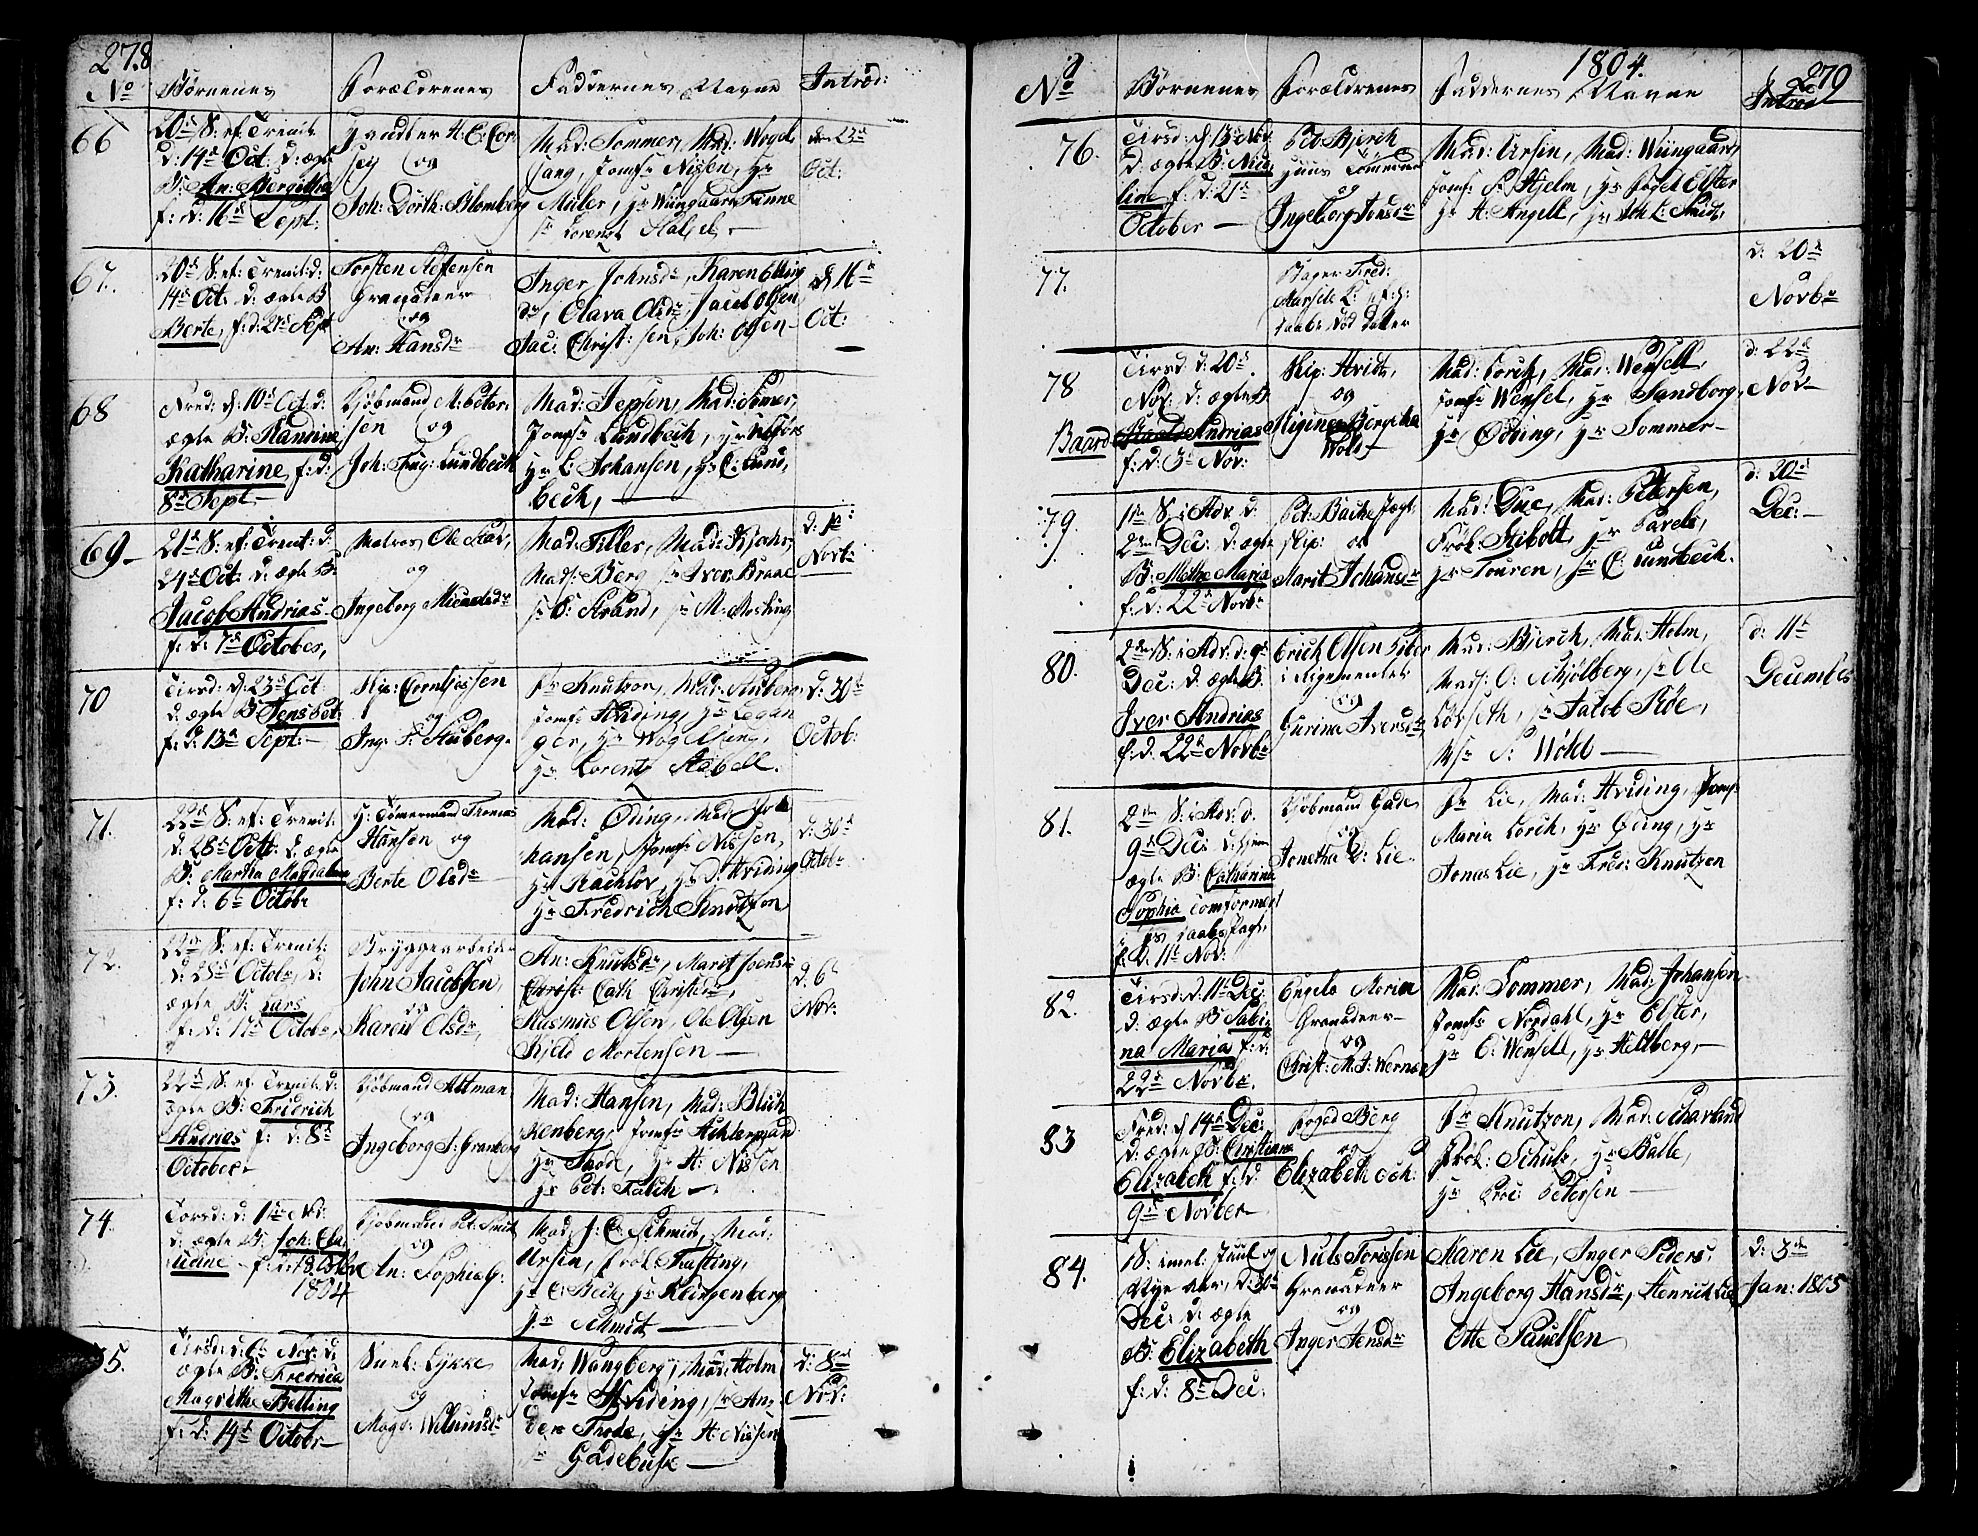 278
No Børnenes Forældrenes Faddernes Navne Introd:
66
20de S. ef: Trenit:
d: 14de Oct: d: ægte
B: An: Bergitha
f: d: 16de Sept:
Handler H. C. Cor-
sey og
Joh: Dorth: Blomberg
Mad: Sommer, Mad: Vogel-
sang, Jomfr Nissen, Hr
Müller, Hr Wüngaard
Sr Lorentz
d: 23de
Oct:
67.
20de S: ef: Trenit: d:
14de Oct. d: ægte B
Berte, f: d: 21de Sept
Torsten Steffensen
Granadeer
og
An: Hansdr
Inger Johnsdr, Karen Elling
dr, Olava Olsdr, Jacob Olsen,
Jac: Christ: sen, Joh: Olsen
d 16de
Oct:
68
Fred: d: 10de Oct d:
ægte B: Handine
Katharine, f: d:
8de Sept
Kjøbmand M: Peter-
sen og
Joh: Lundbech
Mad: Jepsen, Mad: Somer,
Jomfr Lundbech, Hr
Hr L: Johansen, Hr C: Lund,
bech,
69
21de S: ef: Trenit: d:
24de Oct: d: ægte B:
Jacob Andrias
f: d: 7de October,
Matros Ole
og
Ingeborg
Mad: Filler, Mad:
Mads: Berg Sr Iver Braae
Sr O: Strand, Sr M:
d: 1ste
Novbr
70
Tirsd: d: 23de Oct:
d: ægte B Jens Pet:
f: d: 13de Sept:
Skip: Corneliessen
og
Ing: Stuberg
Fr Knutzon, Mad:
Jomfr Hviding, Hr Legan
ger, Hr
Hr Lorentz Stabell.
d: 30te
Octob:
71.
22de S: ef: Trenit:
d: 28de Octb: d: ægte
B: Martha Magdalena
f: d: 6te Octobr
H: Tømermand Thomas
Hansen og
Berte Olsdr
Mad: Øding, Mad Jo
hansen, Jomfr Nissen,
Hr Rachlov, Hr D: Hviding
Hr Fredrich Knutzon
d: 30te
Octobr
72.
22de S: ef: Trenit:
d: 28de Octobr, d:
ægte B: Lars
f: d: 17de Octobr,
Bryggearbeider
John Jacobsen,
og
Karen Olsdr,
An: Knutsdr, Marit Joensdr
Christ: Cath Christsdr,
Rasmus Olsen, Ole Olsen
Kjeld Mortensen
d. 6te
Nov:
73.
22de S. ef: Trenit: d:
ægte B: Fridrich
Andrias f: d: 8de
October
Kjøbmand Altman
og
Ingeborg S: Granberg
Mad: Hansen, Mad: Blich
kenberg, Jomfr Achlermand
Hr Thode, Hr H: Nissen
Hr Pet: Falch
74.
Torsd: d: 1ste Nov:
d: ægte B: Joh: Clau
udine f: d: 13 Octbr
1804
Kjøbmand Pet: Smit
og
An: Sophia G:
Mad, J: C: Schmidt, Mad:
Ursin, Frøk Fasting,
Hr C: Bech, Hr Klingenberg
Hr Schmidt
75.
Tirsd: d: 6te Nov: d:
ægte B: Fredrica
Magrethe Belling
f: d: 14de Octobr
Lykke
og
Magd: Wilumsdr
Mad, Wangberg, Mad: Holm
Jomfr Hviding, Sr An:
ders Thode, Hr H: Nissen
Sr Gadebusk
d: 8de
Nov:
1804.
279
No Børnenes Forældrenes Faddernes Navne Introd
76.
Tirsd: d 13de Nov
d: ægte B: Nico
line f: d: 21de
October
Pet Bjerch
Huus Tømmer
og
Ingeborg Jonsdr
Mad: Ursin, Mad: Wüngaard,
Jomfr S: Hjelm, Hr Foged Elster
Hr H: Angell, Hr Joh L: Smidt,
77.
Bager Fred:
Marsete K: f:
Daabe død datter
d: 20de
Novbr
78
Tirsd: d: 20de
Nov: d: ægte B.
Baard Andrias
f: d: 3de Nov:
Skip: Hvidt,
og
Higinea Bergitha
Wold
Mad: Lorch, Mad: Wensell,
Jomfr Wensel, Hr Sandborg,
Hr Oding, Hr Sommer
d: 22de
Nov
79.
1ste S: i Adv d:
2den Dec: d: ægte
B: Methe Maria
f: d: 22de Novbr
Pet: Backe Jægt
skip: og
Marit Johansdr
Mad: Due, Mad: Petersen,
Frøk: Stibolt, Hr Pavels,
Hr Touren, Sr C: Lundbech.
d: 20de
Dec:
80.
2den S: i Adv: d: 9de
Dec: d: ægte B.
Iver Andrias
f: d: 22de Novbr
Erich Olsen Piber
i Rigementet
og
Gurina Iversdr
Mad: Bjerch, Mad: Holm,
Mads: O: Schjølberg, Sr Ole
Løvseth, Sr Jakob Röe,
Sr S: Wöld
d: 11te
December
81.
2den S: i Adv. d.
9de Dec: d: hjem
ægte B: Catharina
Sophia comformert
Hr daabs Pagt,
f: d: 11te Nov:
Kjøbmand Gade
og
Jonetha C: Lie
Fr Lie, Mad: Hviding, Jomf:
Maria Lorch, Hr Øding, Hr
Jonas Lie, Hr Fred: Knutzon
82.
Tirsd: d. 11te Dec:
d: ægte B: Sabi
na Maria f: d:
22de Novbr.
Engelo Morian
Granadeer
og
Christ: M: J: Werner
Mad: Sommer, Mad: Johansen
Jomfr Nordahl, Hr Elster,
Hr C: Wensell, Hr Heltberg,
83
Fred: d 14de Dec:
d: ægte B: Christiana
Elizabeth f: d:
9de Novber
Foged Berg
og
Elizabeth Sch:
Fr Knutzon, Mad: Scharland
Frøk: Schult, Hr Balle,
Hr Proc: Petersen
84.
S: imel: Juul og
Nye Aar, d: 30te
Dec: d: ægte
B: Elizabeth
f: d: 8de Dec:
Niels Torssen
Granadeer
og
Inger Jensdr
Karen Lie, Inger Peders,
Ingeborg Hansdr, Henrich Lie
Otte Paulsen
d: 3de
Jan: 1805